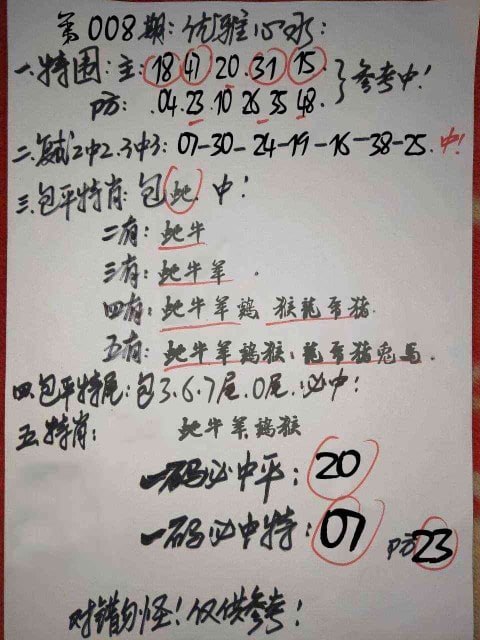 第008期:优雅心水:
一.特围:主:18 47 20.31 15.
防: .04.23.10 26 35 48. }参考中!
二.复试2中2.3中3:07-30-24-19-16-38-25.中!
三.包平特肖:包蛇.中!
二肖:蛇牛
三肖:蛇牛羊.
四肖:蛇牛羊鸡 猴龍馬猪
五肖:蛇牛羊鸡猴:龍 猪兔马.
四.包平特尾:包3.6.7尾.0尾.必中!
五.特肖: 蛇牛羊鸡猴
一码必中平:20
一码必中特:07 防23
对错勿怪!仅供参考!